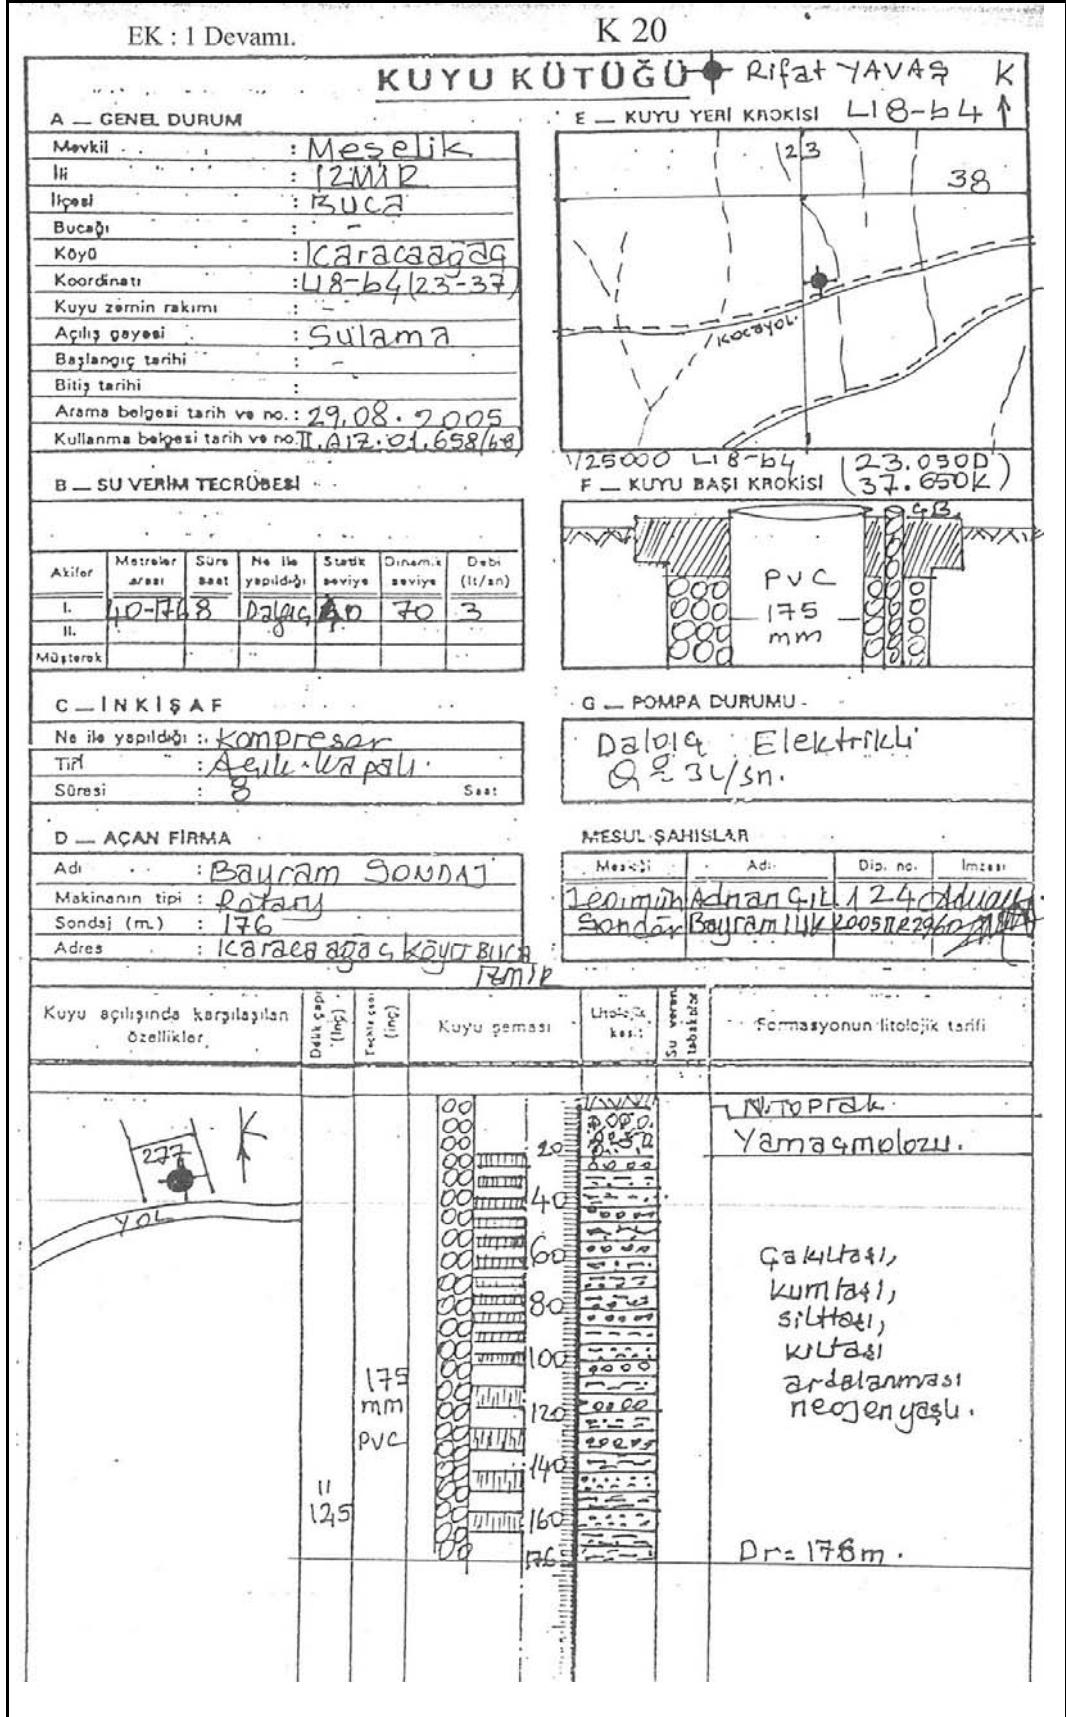 EK : 1 Devamı.
K 20
KUYU KÜTÜĞÜ
Rifat YAVAŞ
K
A — GENEL DURUM
Mevkii : Meşelik
İli : İZMİR
İlçesi : BUCA
Bucağı : -
Köyü : Karacaağaç
Koordinatı : L18-b4(23-37)
Kuyu zemin rakımı : -
Açılış gayesi : Sulama
Başlangıç tarihi : -
Bitiş tarihi :
Arama belgesi tarih ve no. : 29.08.2005
Kullanma belgesi tarih ve no.
E — KUYU YERİ KROKİSİ L18-b4
23
38
Kocayol.
1/25000 L18-b4 (23.050D)
(37.650K)
B — SU VERİM TECRÜBESİ
Akifer
Metreler arası
Süre saat
Ne ile yapıldığı
Statik seviye
Dinamik seviye
Debi (lt/sn)
I. 40-176 8 Dalgıç 40 70 3
II.
Müşterek
F — KUYU BAŞI KROKİSİ
Ç.B.
PVC
175
mm
C — İNKİŞAF
Ne ile yapıldığı : Kompresör
Tipi : Açık-Kapalı.
Süresi : 8 Saat
G — POMPA DURUMU
Dalgıç Elektrikli
Q ≅ 3L/sn.
D — AÇAN FİRMA
Adı : Bayram SONDAJ
Makinanın tipi : Rotary
Sondaj (m.) : 176
Adres : Karacaağaç Köyü BUCA
İZMİR
MESUL ŞAHISLAR
Mesleği Adı Dip. no. İmzası
Jeo.müh Adnan
Sondör Bayram
Kuyu açılışında karşılaşılan özellikler
Delik çapı (inç)
Techiz çapı (inç)
Kuyu şeması
Litolojik kes.
Su veren tabakalar
Formasyonun litolojik tarifi
N.Toprak
Yamaçmolozu.
277
K
YOL
20
40
60
80
100
120
140
160
176
Çakıltaşı,
kumtaşı,
silttaşı,
kiltaşı
ardalanması
neojen yaşlı.
175
mm
PVC
12,5"
Dr= 176m.